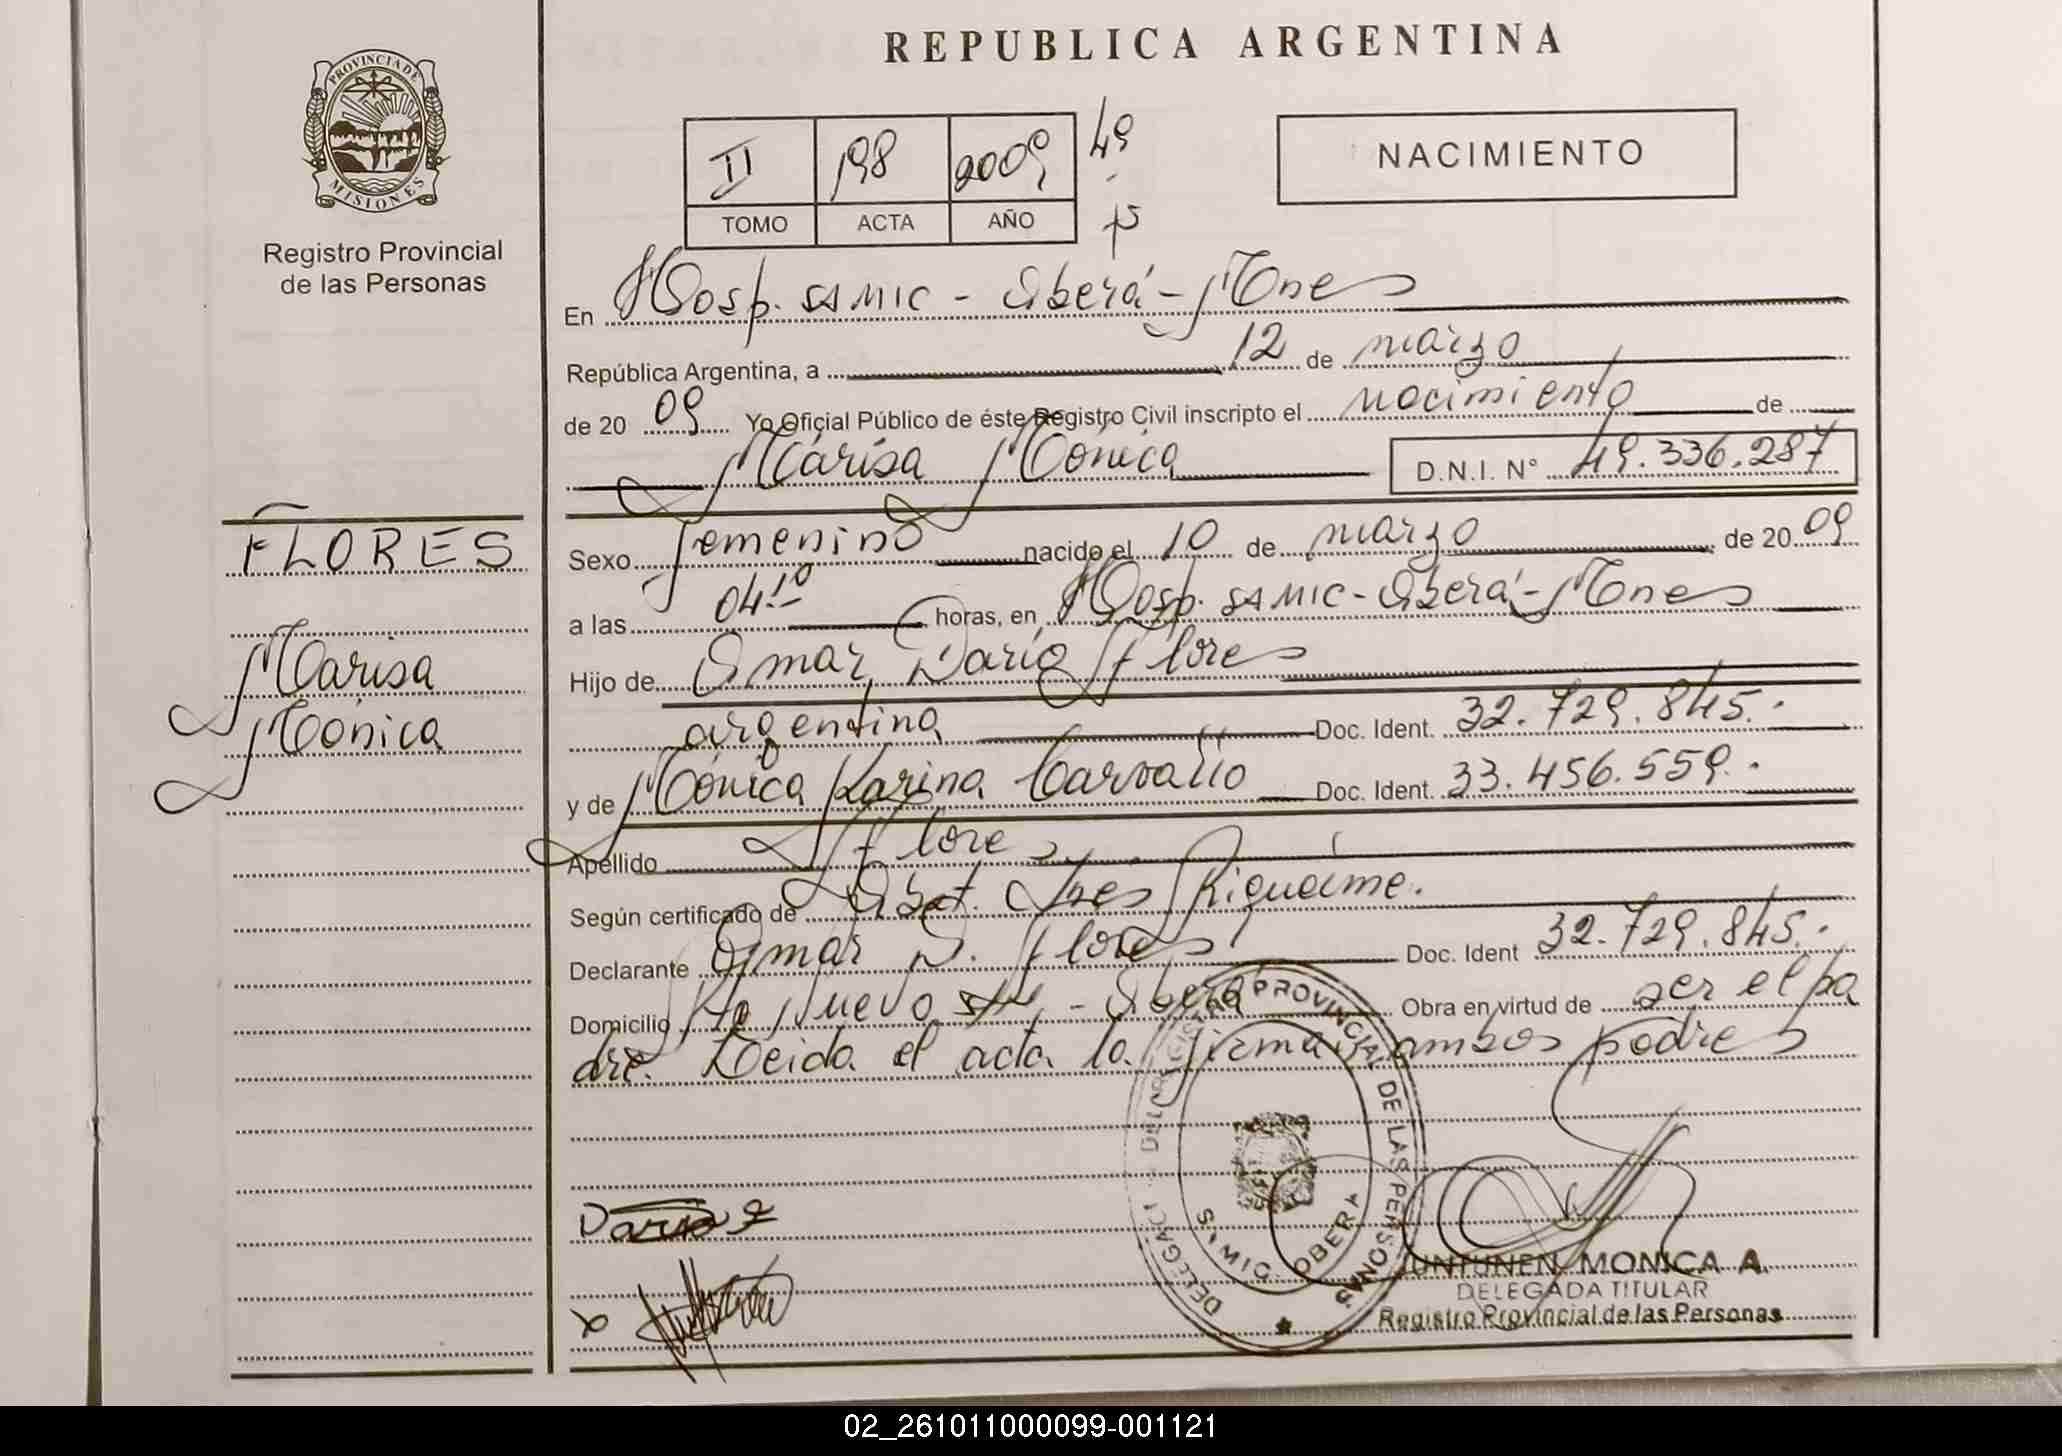 PROVINCIA DE
MISIONES
Registro Provincial
de las Personas
FLORES
Marisa
Mónica
REPUBLICA ARGENTINA
II 198 2009 49
TOMO ACTA AÑO
NACIMIENTO
En Hosp. SAMIC - Oberá - Mnes
República Argentina, a 12 de marzo
de 20 09 Yo Oficial Público de éste Registro Civil inscripto el nacimiento de
Marisa Mónica D.N.I. N° 49.336.287
Sexo femenino nacido el 10 de marzo de 20 09
a las 04:10 horas, en Hosp. SAMIC - Oberá - Mnes
Hijo de Omar Darío Flores
argentina Doc. Ident. 32.729.845.-
y de Mónica Karina Carvallo Doc. Ident. 33.456.559.-
Apellido Flores
Según certificado de Obst. Inés
Declarante Omar D. Flores Doc. Ident 32.729.845.-
Domicilio Nuevo s/n - Oberá Obra en virtud de ser el pa
dre. Leida el acta la firman ambos padres
DELEGACI REGISTRO PROVINCIAL DE LAS PERSONAS
OBERA
Dario
JUNTUNEN MONICA A.
DELEGADA TITULAR
Registro Provincial de las Personas
02_261011000099-001121